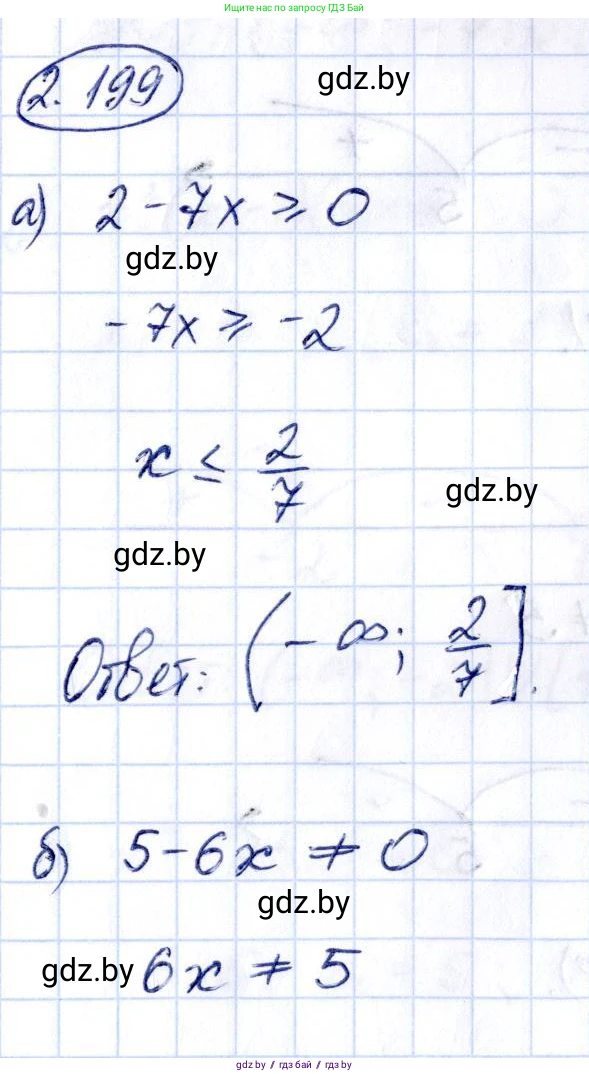 Ищите нас по запросу ГДЗ Бай
2.199
gdz.by
а) 2 - 7x ⩾ 0
gdz.by
- 7x ⩾ -2
x ≤ 2/7
gdz.by
gdz.by
Ответ: (- ∞; 2/7].
б) 5 - 6x ≠ 0
gdz.by
gdz.by 6x ≠ 5
gdz.by / гдз бай / гдз.by